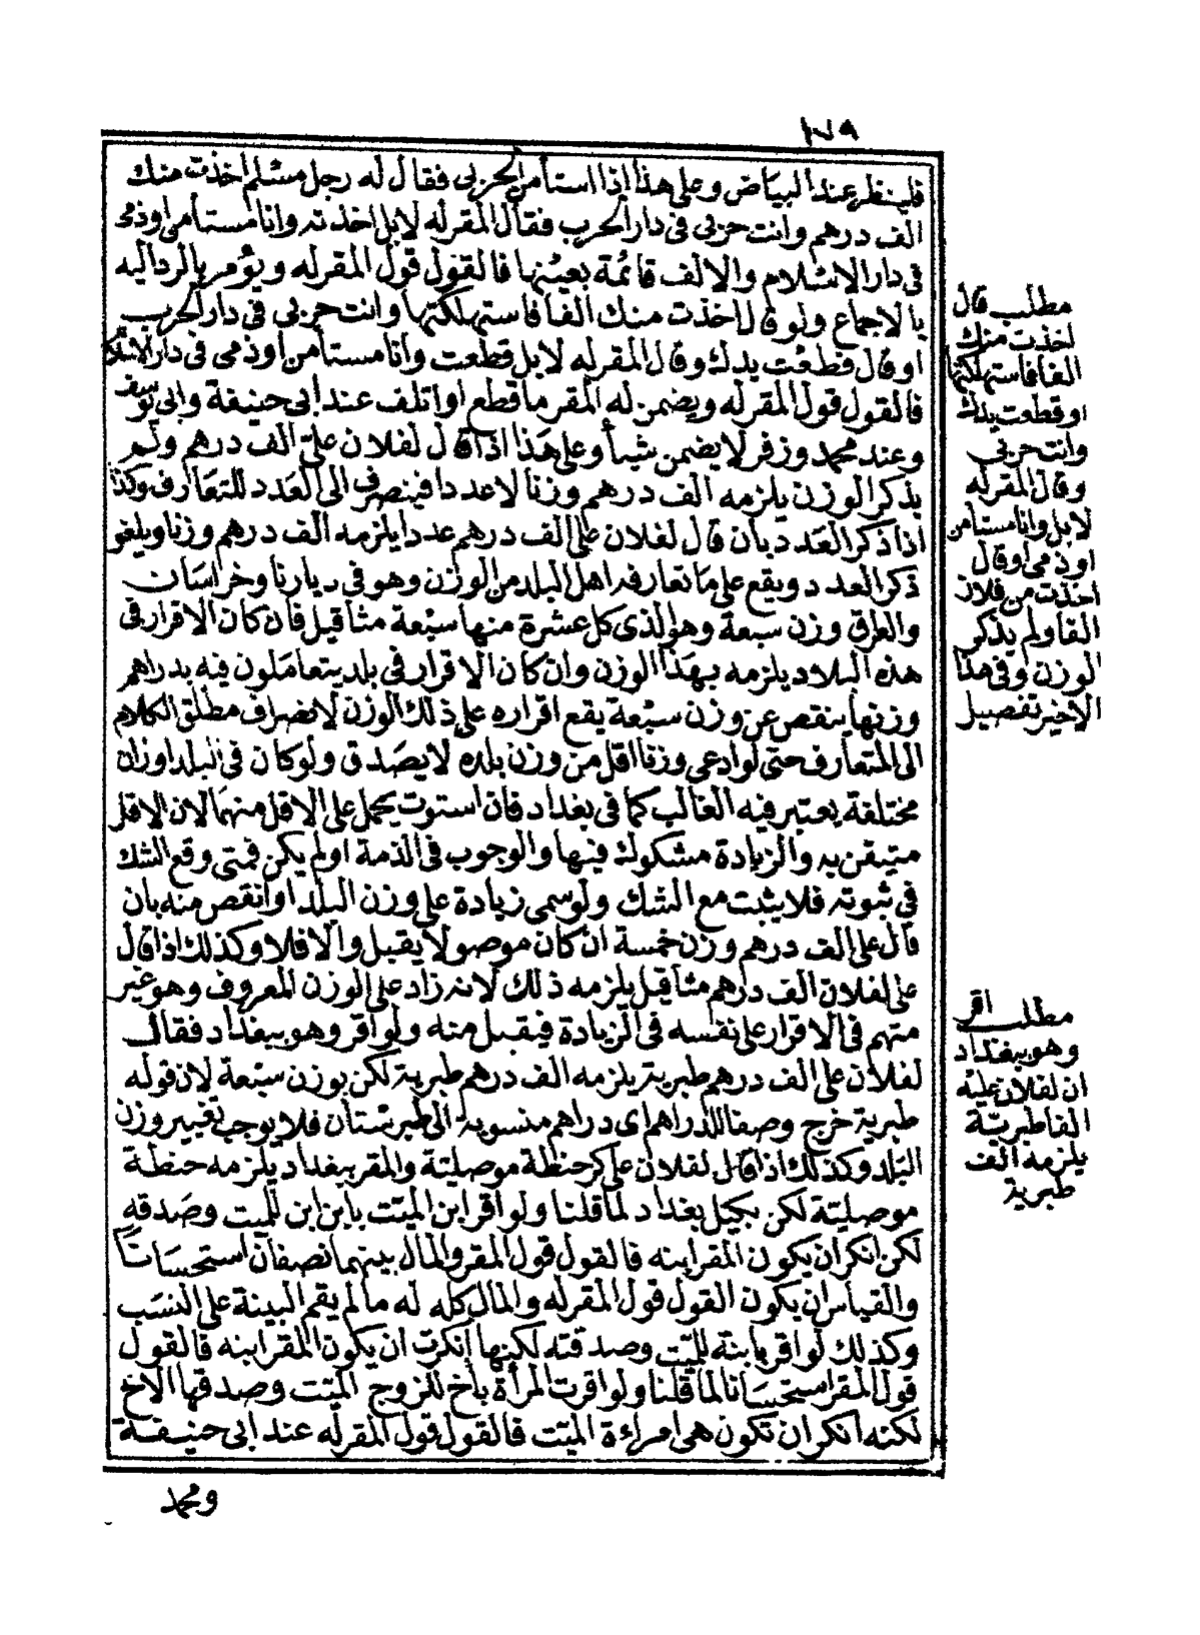 ١٧٩
فلينظر عند البياض وعلى هذا اذا استأمن الحربى فقال له رجل مسلم اخذت منك
الف درهم وانت حربى فى دار الحرب فقال المقرله لا بل اخذته وانا مستأمن او ذمى
فى دار الاسلام والالف قائمة بعينها فالقول قول المقرله ويؤمر بالرد اليه
بالاجماع ولو قال اخذت منك الفا فاستهلكتها وانت حربى فى دار الحرب
او قال قطعت يدك وقال المقرله لا بل قطعت وانا مستأمن او ذمى فى دار الاسلام
فالقول قول المقرله ويضمن له المقر ما قطع او اتلف عند ابى حنيفة وابى يوسف
وعند محمد وزفر لا يضمن شيأ وعلى هذا اذا قال لفلان علىّ الف درهم ولم
يذكر الوزن يلزمه الف درهم وزنا لا عددا فينصرف الى العدد للتعارف وكذا
اذا ذكر العدد بان قال لفلان على الف درهم عددا يلزمه الف درهم وزنا ويلغو
ذكر العدد ويقع على ما تعارفه اهل البلد من الوزن وهو فى ديارنا وخراسان
والعراق وزن سبعة وهو الذى كل عشرة منها سبعة مثاقيل فان كان الاقرار فى
هذه البلاد يلزمه بهذا الوزن وان كان الاقرار فى بلد يتعاملون فيه بدراهم
وزنها ينقص عن وزن سبعة يقع اقراره على ذلك الوزن لانصراف مطلق الكلام
الى المتعارف حتى لو ادعى وزنا اقل من وزن بلده لا يصدق ولو كان فى البلد اوزان
مختلفة يعتبر فيه الغالب كما فى بغداد فان استوت يحمل على الاقل منهما لان الاقل
متيقن به والزيادة مشكوك فيها والوجوب فى الذمة اولم يكن فمتى وقع الشك
فى ثبوته فلا يثبت مع الشك ولو سمى زيادة على وزن البلد او انقص منه بان
قال على الف درهم وزن خمسة ان كان موصولا يقبل والا فلا وكذلك اذا قال
على لفلان الف درهم مثاقيل يلزمه ذلك لانه زاد على الوزن المعروف وهو غير
متهم فى الاقرار على نفسه فى الزيادة فيقبل منه ولو اقر وهو ببغداد فقال
لفلان على الف درهم طبرية يلزمه الف درهم طبرية لكن بوزن سبعة لان قوله
طبرية خرج وصفا للدراهم اى دراهم منسوبة الى طبرستان فلا يوجب تغيير وزن
البلد وكذلك اذا قال لفلان على كر حنطة موصلية والمقر ببغداد يلزمه حنطة
موصلية لكن بكيل بغداد لما قلنا ولو اقر ابن الميت بابن ابن للميت وصدقه
لكن انكر ان يكون المقر ابنه فالقول قول المقر والمال بينهما نصفان استحسانا
والقياس ان يكون القول قول المقرله والمال كله له ما لم يقم البينة على النسب
وكذلك لو اقر بابنة للميت وصدقته لكنها انكرت ان يكون المقر ابنه فالقول
قول المقر استحسانا لما قلنا ولو اقرت المرأة باخ للزوج الميت وصدقها الاخ
لكنه انكر ان تكون هى امراءة الميت فالقول قول المقرله عند ابى حنيفة
ومحمد
مطلب قال
اخذت منك
الفا فاستهلكتها
او قطعت يدك
وانت حربى
وقال المقرله
لا بل وانا مستأمن
او ذمى او قال
اخذت من فلان
الفا ولم يذكر
الوزن وفى هذا
الاخير تفصيل
مطلب اقر
وهو ببغداد
ان لفلان عليه
الفا طبرية
يلزمه الف
طبرية